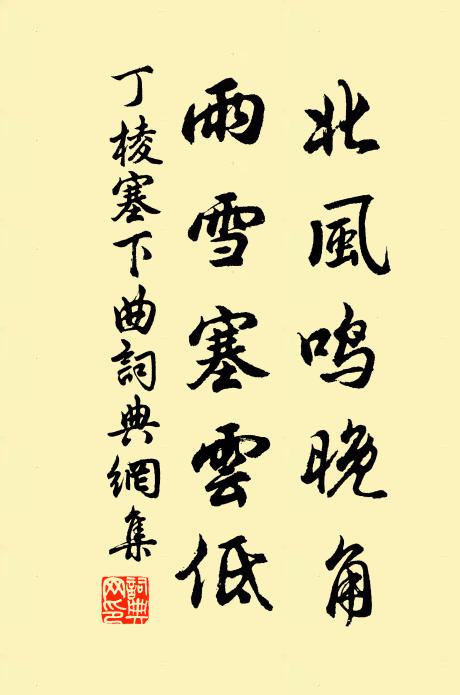 北風鸣晚角
雨雪塞雲低
丁棱塞下曲詞典網集
詞典網印